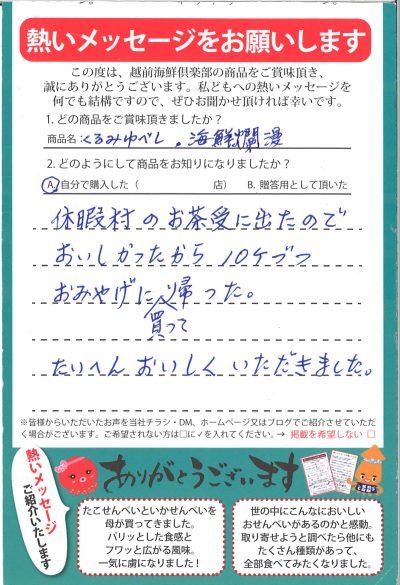 熱いメッセージをお願いします
この度は、越前海鮮倶楽部の商品をご賞味頂き、
誠にありがとうございます。私どもへの熱いメッセージを
何でも結構ですので、ぜひお聞かせ頂ければ幸いです。
1. どの商品をご賞味頂きましたか?
商品名:くるみゆべし。海鮮爛漫
2. どのようにして商品をお知りになりましたか?
A.自分で購入した( 店) B. 贈答用として頂いた
休暇村のお茶受に出たので
おいしかったから 10ケづつ
おみやげに帰った。
買って
たいへんおいしくいただきました。
※皆様からいただいたお声を当社チラシ・DM、ホームページ又はブログでご紹介させていただ
く場合がございます。ご希望されない方は□に✓を入れてください。→ 掲載を希望しない □
熱いメッセージ
ご紹介いたします
ありがとうございます
たこせんべいといかせんべいを
母が買ってきました。
パリッとした食感と
フワッと広がる風味。
一気に虜になりました!
世の中にこんなにおいしい
おせんべいがあるのかと感動。
取り寄せようと調べたら他にも
たくさん種類があって、
全部食べてみたくなりました。